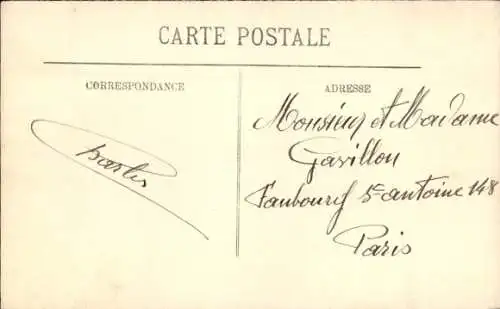 CARTE POSTALE
CORRESPONDANCE
ADRESSE
Monsieur et Madame
Gavillon
Faubourg St antoine 148
Paris